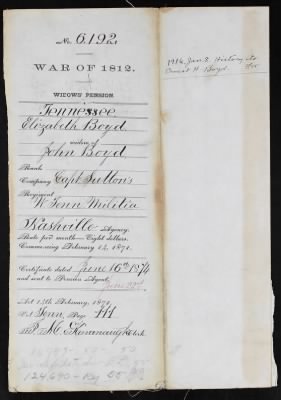 No. 6192
WAR OF 1812.
WIDOWS' PENSION
Tennessee
Elizabeth Boyd
widow of
John Boyd
Rank
Company Capt Sutton's
Regiment
W Tenn Militia
Nashville Agency.
Rate per month—Eight dollars.
Commencing February 14, 1871.
Certificate dated June 16th 1874
and sent to Pension Agent,
June 23rd
Act 14th February, 1871.
Vol. Tenn, Page 111
Clerk.
1916, Jan. 8. History to
Ernest H. Boyd.